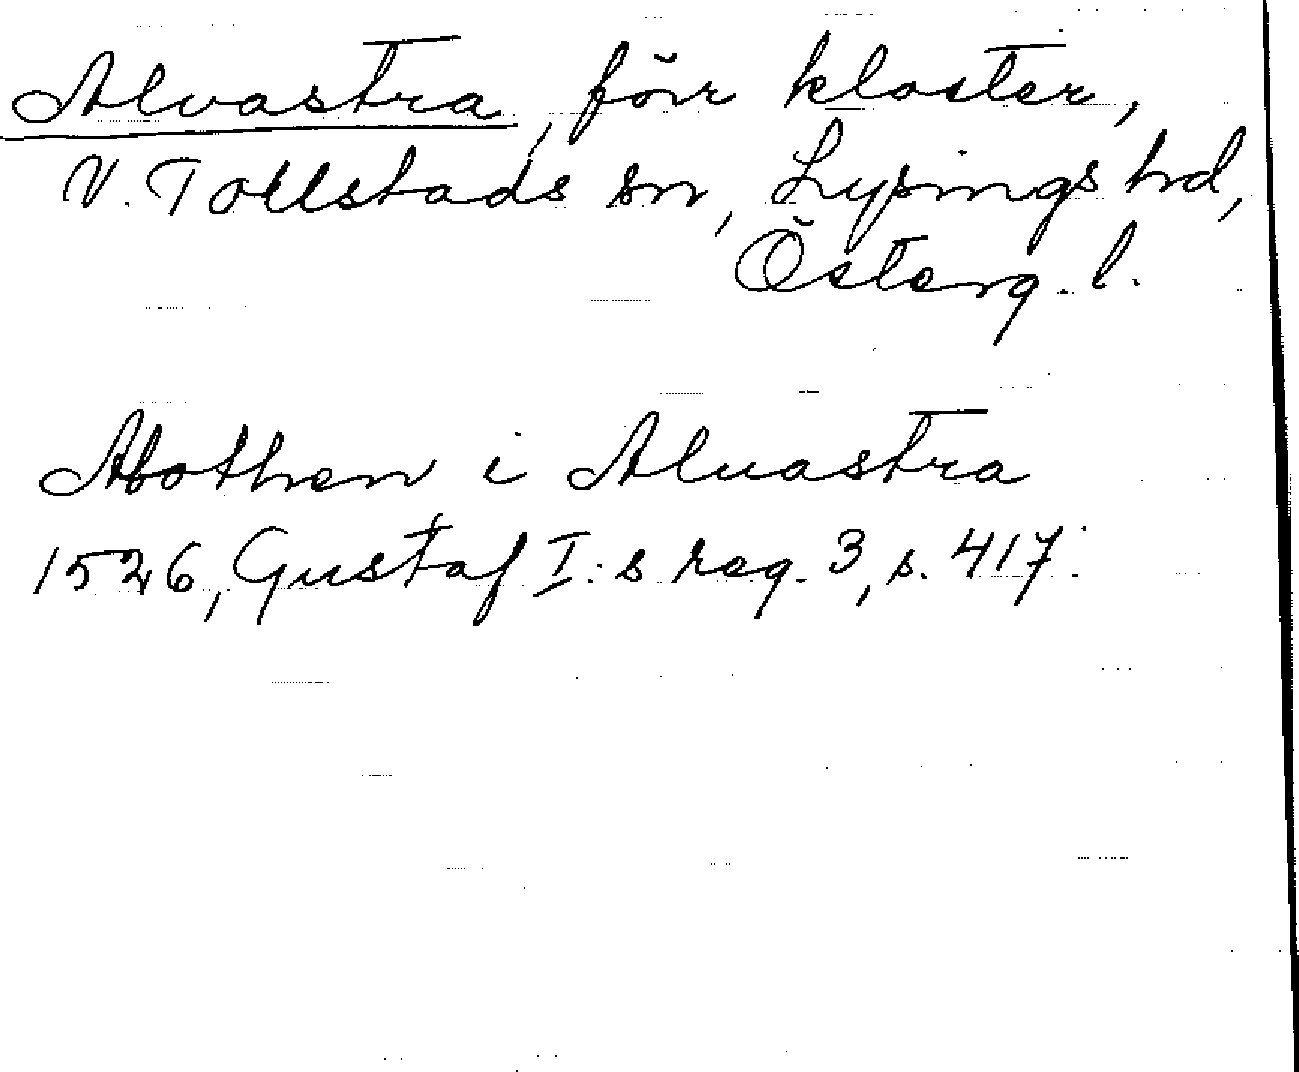 Alvastra, förr kloster,
V. Tollstads sn, Lysings hd,
Österg. l.
Abothen i Aluastra
1526, Gustaf I:s reg. 3, s. 417.